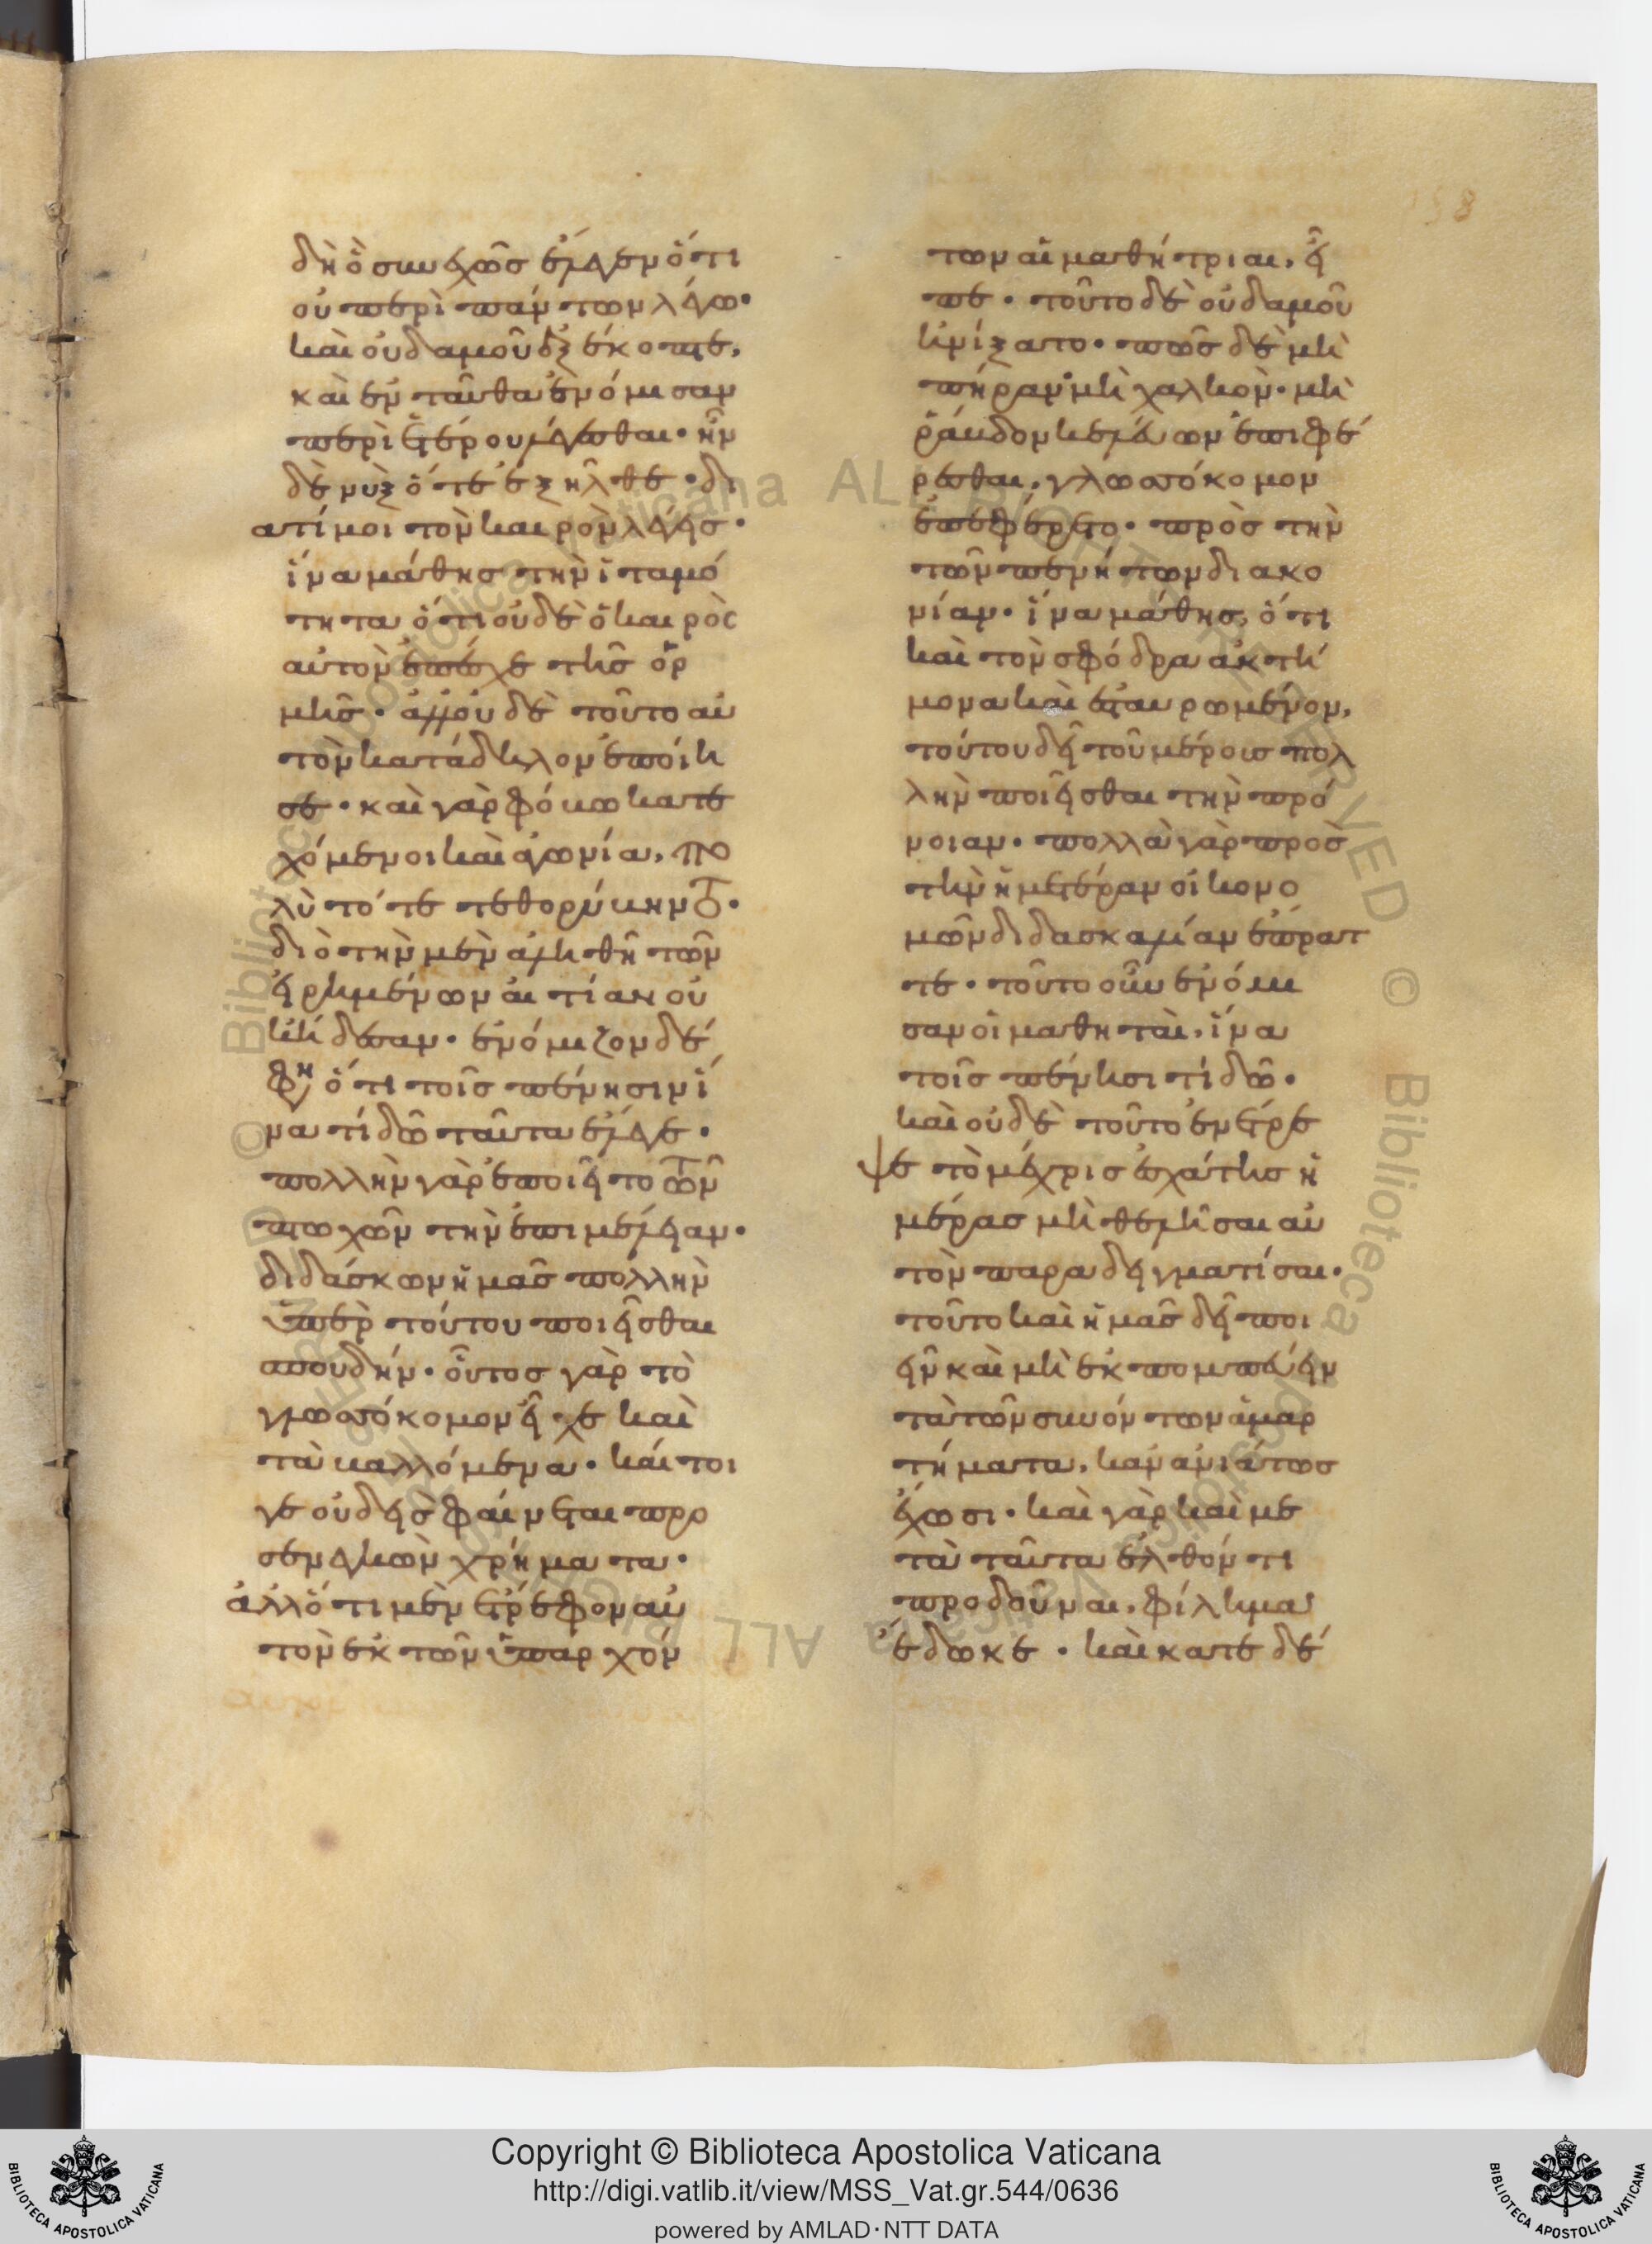 δὴ ὃ συνεχῶς ἔλεγεν ὅτι
οὐ περὶ πάντων λέγω·
καὶ οὐδαμοῦ ἐξέκοπτε,
καὶ ἐνταῦθα ἐνόμισαν
περὶ ἑτέρου λέγεσθαι· ἦν
δὲ νὺξ ὅτε ἐξῆλθε· δι
ατί μοι τὸν καιρὸν λέγεις·
ἵνα μάθης τὴν ἰταμό
τητα ὅτι οὐδὲ ὁ καιρὸς
αὐτὸν ἐπέσχε τῆς ὁρ
μῆς· ἀλλ' οὐδὲ τοῦτο αὐ
τὸν κατάδηλον ἐποίη
σε· καὶ γὰρ φόβω κατε
χόμενοι καὶ ἀγωνία, πο
λὺ τότε τεθορύβηντο·
διὸ τὴν μὲν ἀληθῆ τῶν
εἰρημένων αἰτίαν οὐ
κ ἤδεσαν· ἐνόμιζον δέ
φη ὅτι τοῖς πένησιν ἵ
να τί δῶ ταῦτα ἔλεγε·
πολλὴν γὰρ ἐποιεῖτο τῶν
πτωχῶν τὴν ἐπιμέλειαν·
διδάσκων ἡμᾶς πολλὴν
ὑπὲρ τούτου ποιεῖσθαι
σπουδήν· οὗτος γὰρ τὸ
γλωσσόκομον εἶχε καὶ
τὰ βαλλόμενα· καίτοι
γε οὐδεὶς φαίνεται προ
σενεγκὼν χρήματα·
ἀλλ' ὅτι μὲν ἔτρεφον αὐ
τὸν ἐκ τῶν ὑπαρχόν
των αἱ μαθήτριαι, εἶ
πε· τοῦτο δὲ οὐδαμοῦ
ἠνίξατο· πῶς δὲ μὴ
πήραν μὴ χαλκὸν· μὴ
ῥάβδον κελεύων ἐπιφέ
ρεσθαι, γλωσσόκομον
ἐπεφέρετο· πρὸς τὴν
τῶν πενήτων διακο
νίαν· ἵνα μάθης, ὅτι
καὶ τὸν σφόδρα ἀκτή
μονα καὶ ἐσταυρωμένον,
τούτου δεῖ τοῦ μέρους πολ
λὴν ποιεῖσθαι τὴν πρό
νοιαν· πολλὰ γὰρ πρὸς
τὴν ἡμετέραν οἰκονο
μῶν διδασκαλίαν ἔπρατ
τε· τοῦτο οὖν ἐνόμι
σαν οἱ μαθηταὶ, ἵνα
τοῖς πένησι τί δῶ·
καὶ οὐδὲ τοῦτο ἐνέτρε
ψε τὸ μέχρις ἐσχάτης ἡ
μέρας μὴ θελῆσαι αὐ
τὸν παραδειγματίσαι·
τοῦτο καὶ ἡμᾶς δεῖ ποι
εῖν καὶ μὴ ἐκπομπεύειν
τὰ τῶν συνόντων ἁμαρ
τήματα, κἂν ἀνιάτως
ἔχωσι· καὶ γὰρ καὶ με
τὰ ταῦτα ἐλθόντι
προδοῦναι, φίλημα
ἔδωκε· καὶ κατεδέ
158
Copyright © Biblioteca Apostolica Vaticana
http://digi.vatlib.it/view/MSS_Vat.gr.544/0636
powered by AMLAD·NTT DATA